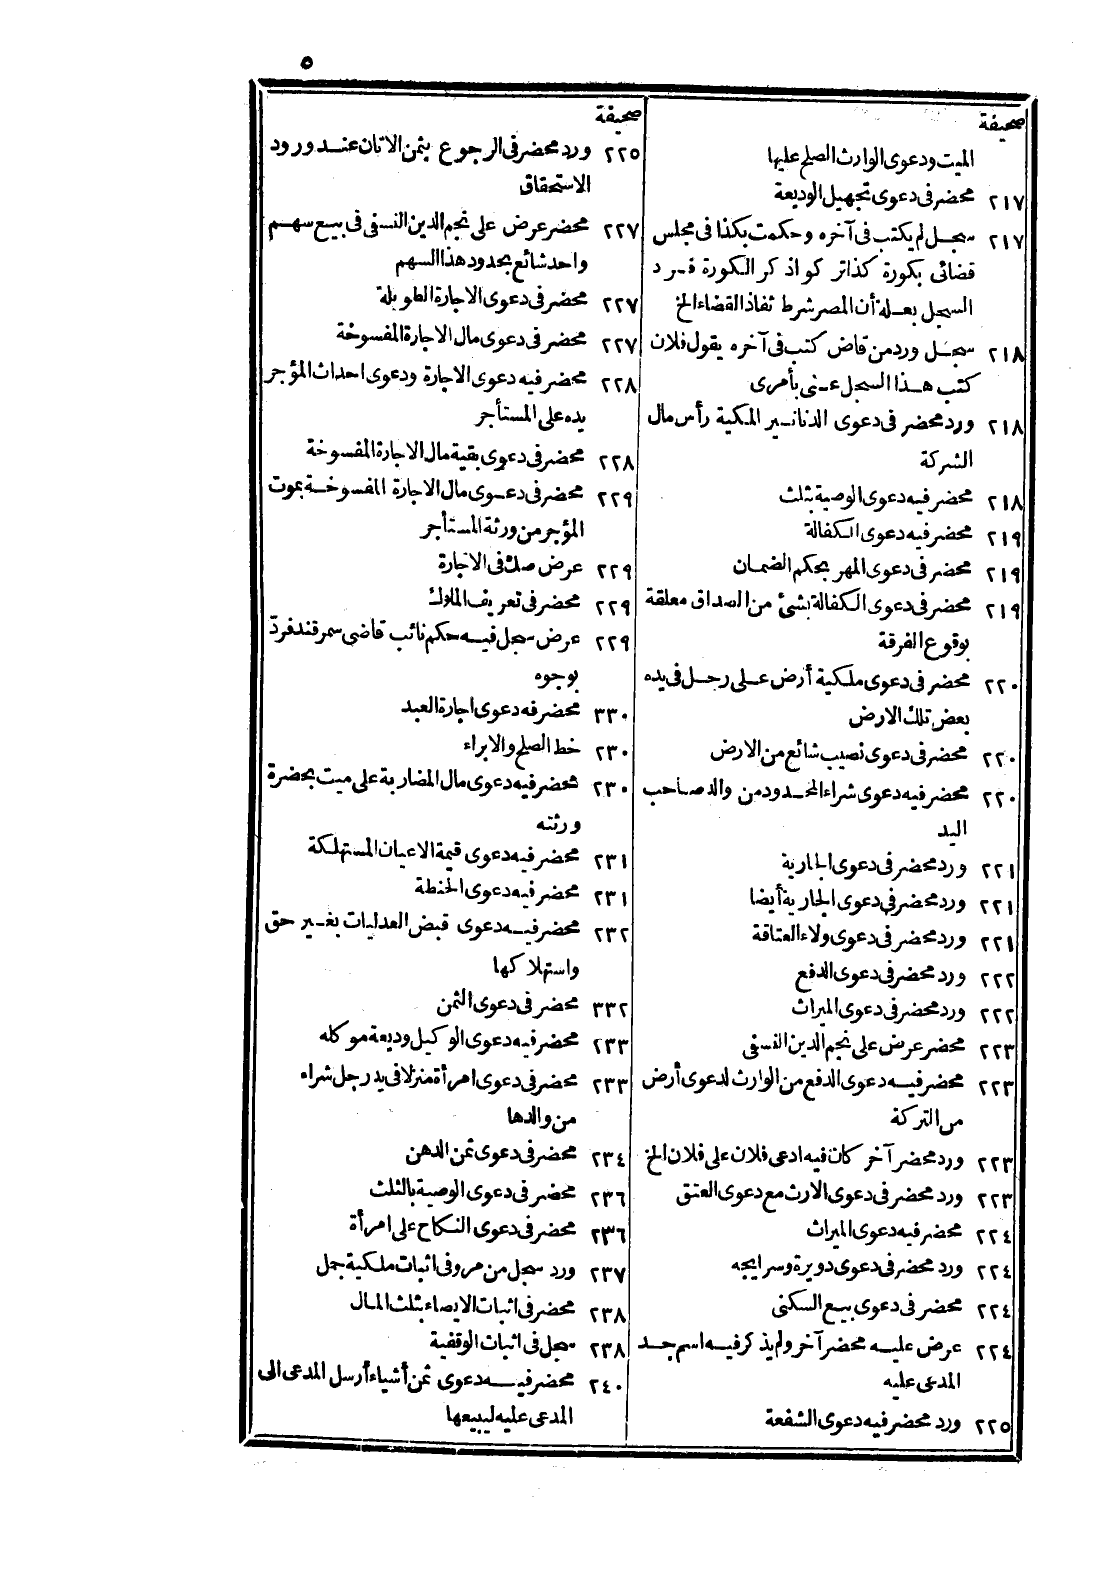 ٥
صحيفة
الميت ودعوى الوارث الصلح عليها
٢١٧ محضر فى دعوى تجهيل الوديعة
٢١٧ سجل لم يكتب فى آخره وحكمت بكذا فى مجلس
قضائى بكورة كذا تركوا ذكر الكورة فرد
السجل بعلة أن المصر شرط نفاذ القضاء الخ
٢١٨ سجل ورد من قاض كتب فى آخره يقول فلان
كتب هذا السجل عنى بأمرى
٢١٨ ورد محضر فى دعوى الدنانير المكية رأس مال
الشركة
٢١٨ محضر فيه دعوى الوصية بثلث
٢١٩ محضر فيه دعوى الكفالة
٢١٩ محضر فى دعوى المهر بحكم الضمان
٢١٩ محضر فى دعوى الكفالة بشئ من الصداق معلقة
بوقوع الفرقة
٢٢٠ محضر فى دعوى ملكية أرض على رجل فى يده
بعض تلك الارض
٢٢٠ محضر فى دعوى نصيب شائع من الارض
٢٢٠ محضر فيه دعوى شراء المحدود من والد صاحب
اليد
٢٢١ ورد محضر فى دعوى الجارية
٢٢١ ورد محضر فى دعوى الجارية أيضا
٢٢١ ورد محضر فى دعوى ولاء العتاقة
٢٢٢ ورد محضر فى دعوى الدفع
٢٢٢ ورد محضر فى دعوى الميراث
٢٢٣ محضر عرض على نجم الدين النسفى
٢٢٣ محضر فيه دعوى الدفع من الوارث لدعوى أرض
من التركة
٢٢٣ ورد محضر آخر كان فيه ادعى فلان على فلان الخ
٢٢٣ ورد محضر فى دعوى الارث مع دعوى العتق
٢٢٤ محضر فيه دعوى الميراث
٢٢٤ ورد محضر فى دعوى دويرة وسرايجه
٢٢٤ محضر فى دعوى بيع السكنى
٢٢٤ عرض عليه محضر آخر ولم يذكر فيه اسم جد
المدعى عليه
٢٢٥ ورد محضر فيه دعوى الشفعة
صحيفة
٢٢٥ ورد محضر فى الرجوع بثمن الاتان عند ورود
الاستحقاق
٢٢٧ محضر عرض على نجم الدين النسفى فى بيع سهم
واحد شائع بحدود هذا السهم
٢٢٧ محضر فى دعوى الاجارة الطويلة
٢٢٧ محضر فى دعوى مال الاجارة المفسوخة
٢٢٨ محضر فيه دعوى الاجارة ودعوى احداث المؤجر
يده على المستأجر
٢٢٨ محضر فى دعوى بقية مال الاجارة المفسوخة
٢٢٩ محضر فى دعوى مال الاجارة المفسوخة بموت
المؤجر من ورثة المستأجر
٢٢٩ عرض صك فى الاجارة
٢٢٩ محضر فى تعريف المملوك
٢٢٩ عرض سجل فيه حكم نائب قاضى سمرقند فردّ
بوجوه
٣٣٠ محضر فه دعوى اجارة العبد
٢٣٠ خط الصلح والابراء
٢٣٠ محضر فيه دعوى مال المضاربة على ميت بحضرة
ورثته
٢٣١ محضر فيه دعوى قيمة الاعيان المستهلكة
٢٣١ محضر فيه دعوى الحنطة
٢٣٢ محضر فيه دعوى قبض العدليات بغير حق
واستهلاكها
٣٣٢ محضر فى دعوى الثمن
٢٣٣ محضر فيه دعوى الوكيل وديعة موكله
٢٣٣ محضر فى دعوى امرأة منزلا فى يد رجل شراء
من والدها
٢٣٤ محضر فى دعوى ثمن الدهن
٢٣٦ محضر فى دعوى الوصية بالثلث
٢٣٦ محضر فى دعوى النكاح على امرأة
٢٣٧ ورد سجل من مرو فى اثبات ملكية جمل
٢٣٨ محضر فى اثبات الايصاء بثلث المال
٢٣٨ سجل فى اثبات الوقفية
٢٤٠ محضر فيه دعوى ثمن أشياء أرسل المدعى الى
المدعى عليه ليبيعها